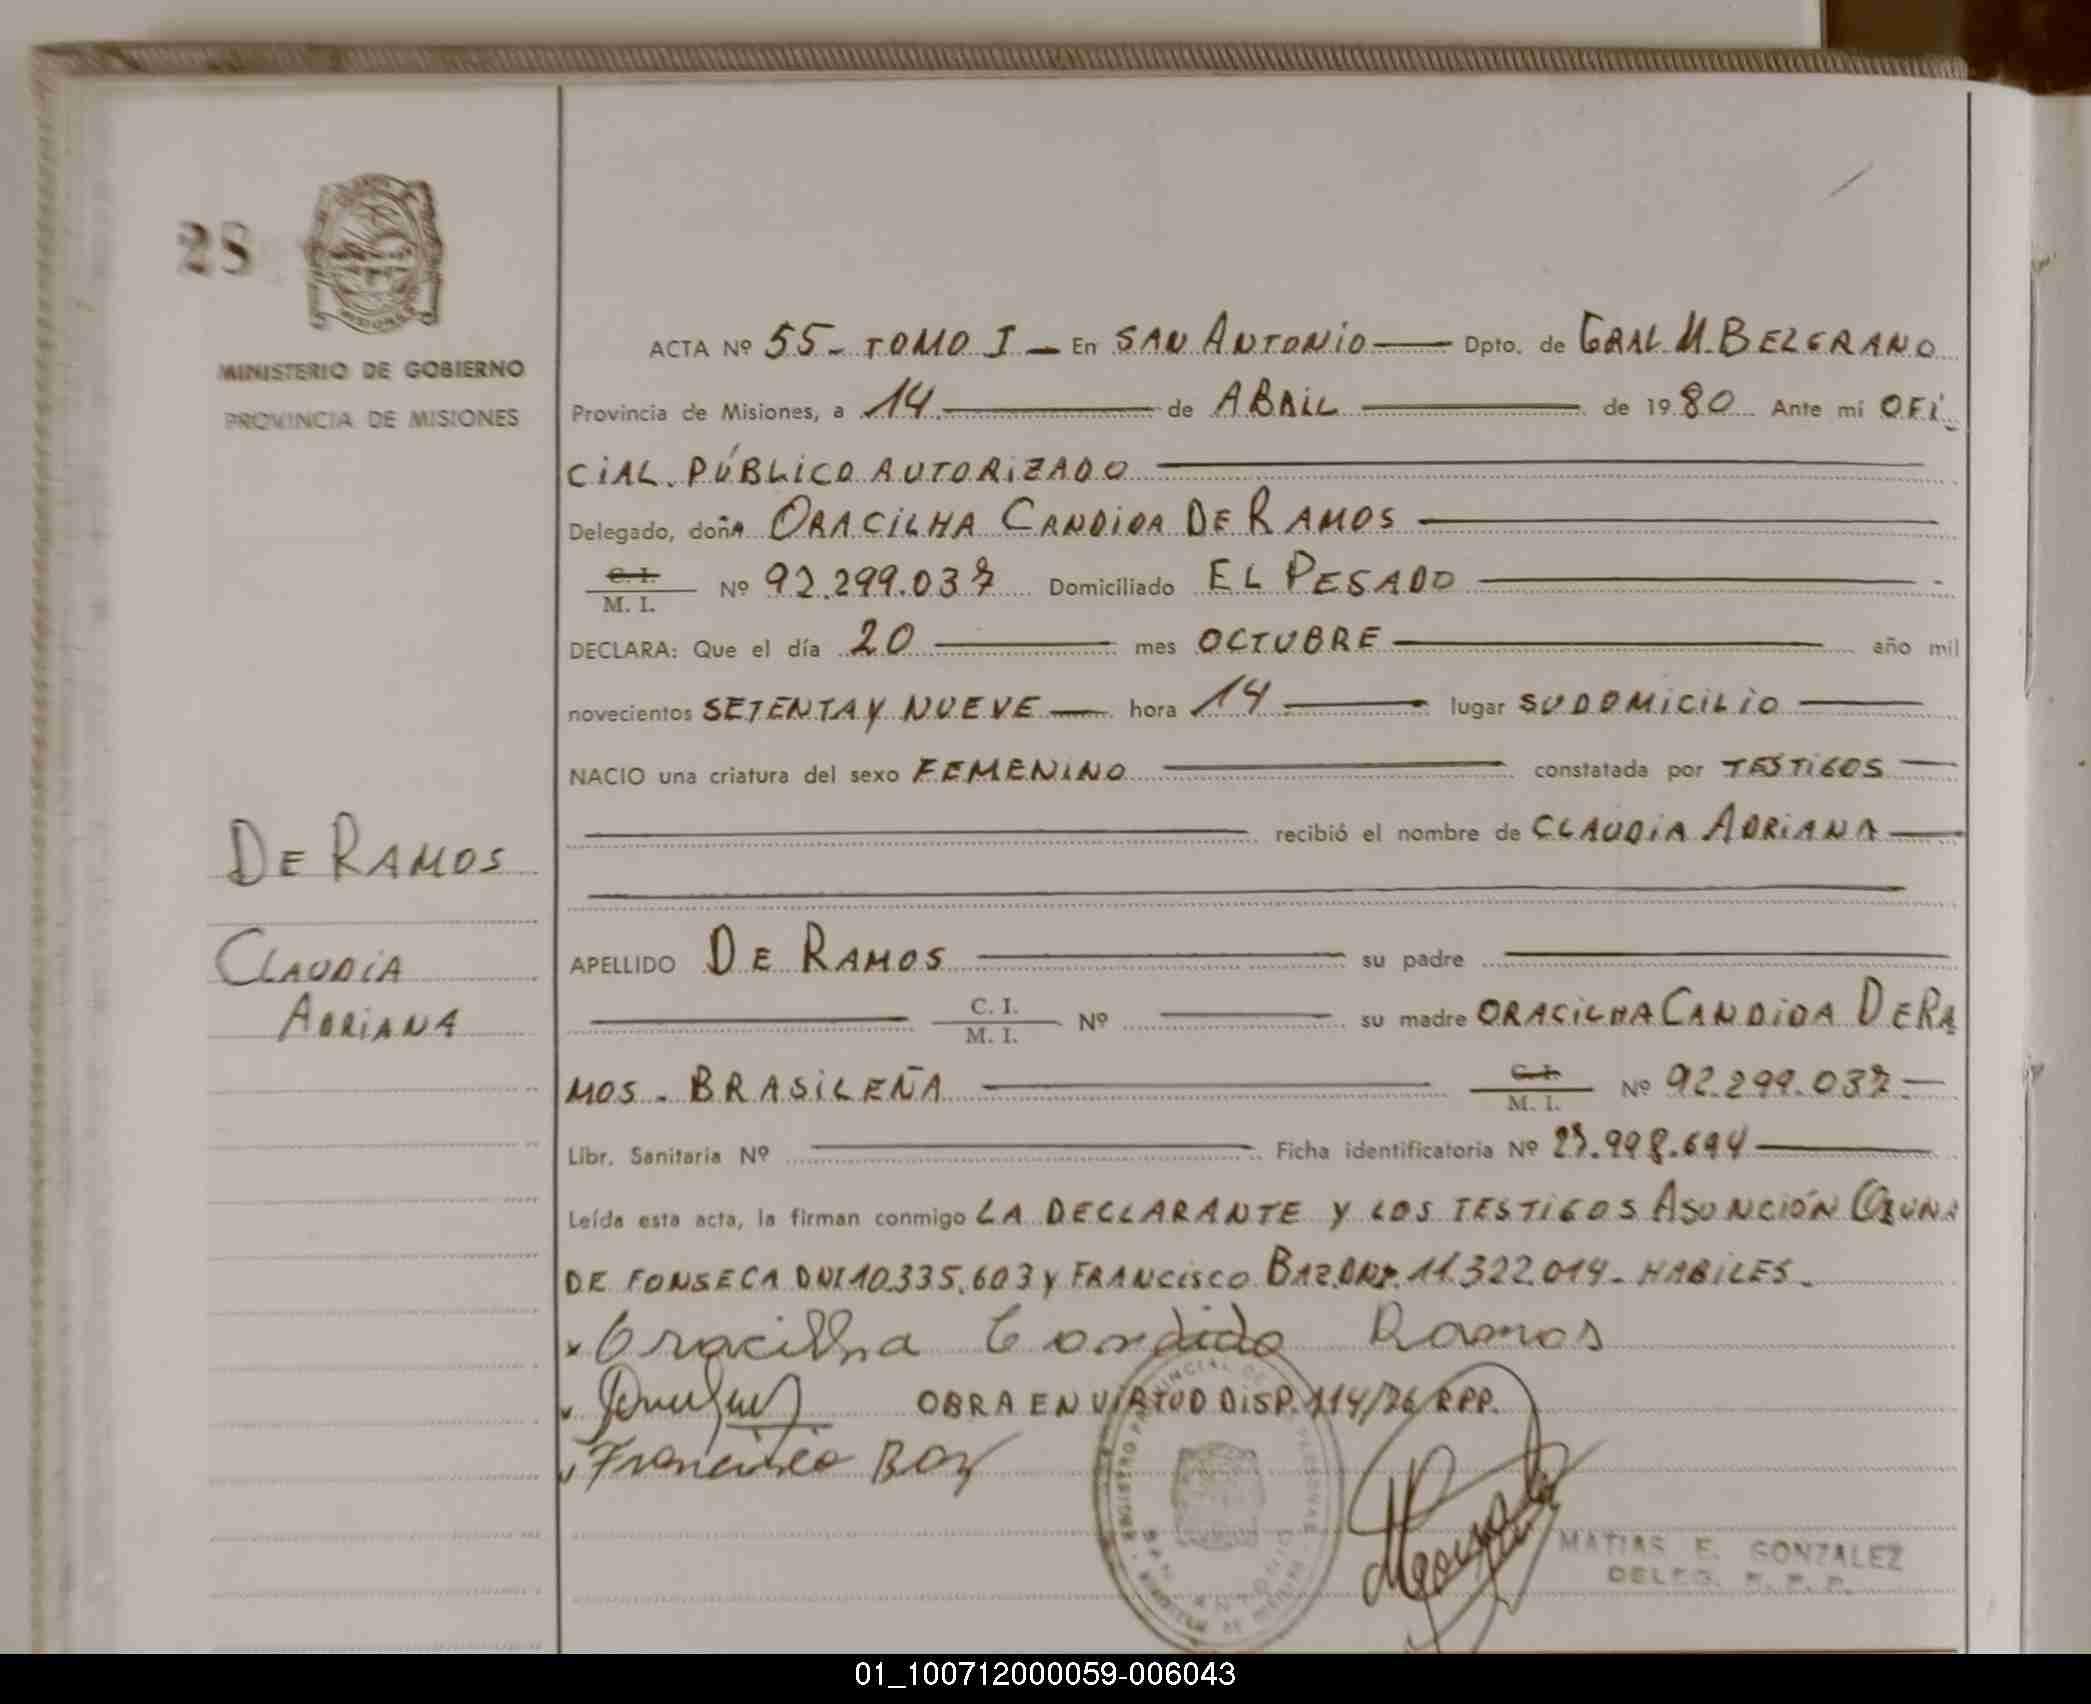 28
MISIONES
MINISTERIO DE GOBIERNO
PROVINCIA DE MISIONES
ACTA Nº 55 - TOMO I - En SAN ANTONIO Dpto. de GRAL M. BELGRANO
Provincia de Misiones, a 14 de ABRIL de 1980 Ante mí OFI
CIAL PÚBLICO AUTORIZADO
Delegado, doñA ORACILHA CANDIDA DE RAMOS
C. I.
M. I. Nº 92.299.037 Domiciliado EL PESADO
DECLARA: Que el día 20 mes OCTUBRE año mil
novecientos SETENTA Y NUEVE hora 14 lugar SU DOMICILIO
NACIO una criatura del sexo FEMENINO constatada por TESTIGOS
recibió el nombre de CLAUDIA ADRIANA
DE RAMOS
CLAUDIA
ADRIANA
APELLIDO DE RAMOS su padre
C. I.
M. I. Nº su madre ORACILHA CANDIDA DE RA
MOS - BRASILEÑA C. I.
M. I. Nº 92.299.037
Libr. Sanitaria Nº Ficha identificatoria Nº 27.998.694
Leída esta acta, la firman conmigo LA DECLARANTE Y LOS TESTIGOS ASUNCIÓN
DE FONSECA DNI 10.335.603 y FRANCISCO BAZ DNI. 11.322.014 - HABILES.
x Oracilha Candida Ramos
OBRA EN VIRTUD DISP. 114/76 RPP.
Francisco Baz
REGISTRO PROVINCIAL DE LAS PERSONAS
SAN ANTONIO
MATIAS E. GONZALEZ
DELEG. R. P. P.
01_100712000059-006043